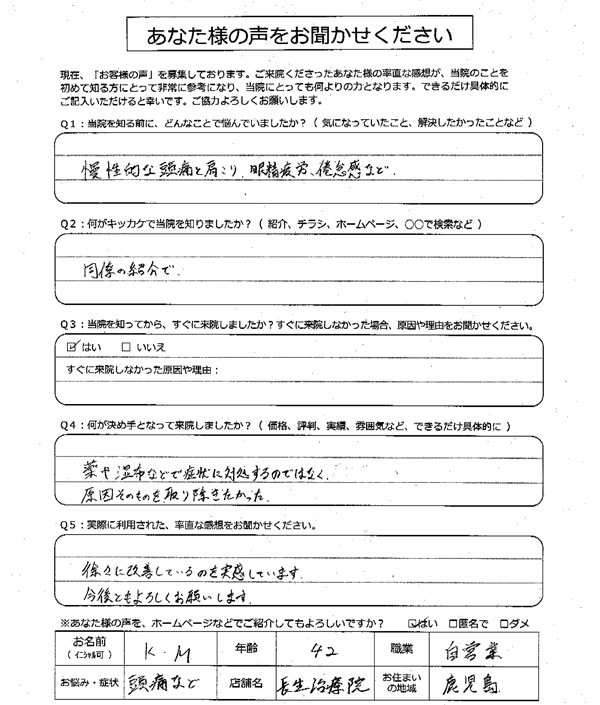 あなた様の声をお聞かせください
現在、「お客様の声」を募集しております。ご来院くださったあなた様の率直な感想が、当院のことを
初めて知る方にとって非常に参考になり、当院にとっても何よりの力となります。できるだけ具体的に
ご記入いただけると幸いです。ご協力よろしくお願いします。
Q1：当院を知る前に、どんなことで悩んでいましたか？（ 気になっていたこと、解決したかったことなど ）
慢性的な頭痛と肩こり、眼精疲労、倦怠感など.
Q2：何がキッカケで当院を知りましたか？（ 紹介、チラシ、ホームページ、○○で検索など ）
同僚の紹介で.
Q3：当院を知ってから、すぐに来院しましたか？すぐに来院しなかった場合、原因や理由をお聞かせください。
☑はい □ いいえ
すぐに来院しなかった原因や理由：
Q4：何が決め手となって来院しましたか？（ 価格、評判、実績、雰囲気など、できるだけ具体的に ）
薬や湿布などで症状に対処するのではなく、
原因そのものを取り除きたかった.
Q5：実際に利用された、率直な感想をお聞かせください。
徐々に改善しているのを実感しています.
今後ともよろしくお願いします.
※あなた様の声を、ホームページなどでご紹介してもよろしいですか？ ☑はい □匿名で □ダメ
お名前（イニシャル可） K・M 年齢 42 職業 自営業
お悩み・症状 頭痛など 店舗名 長生治療院 お住まいの地域 鹿児島